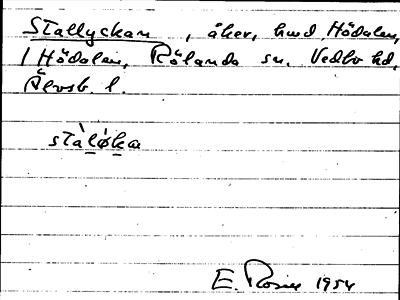 Stallyckan, åker, hmd Hödalen,
1 Hödalen, Rölanda sn. Vedbo hd,
Älvsb. l.
stàløka
E. Rosén 1954